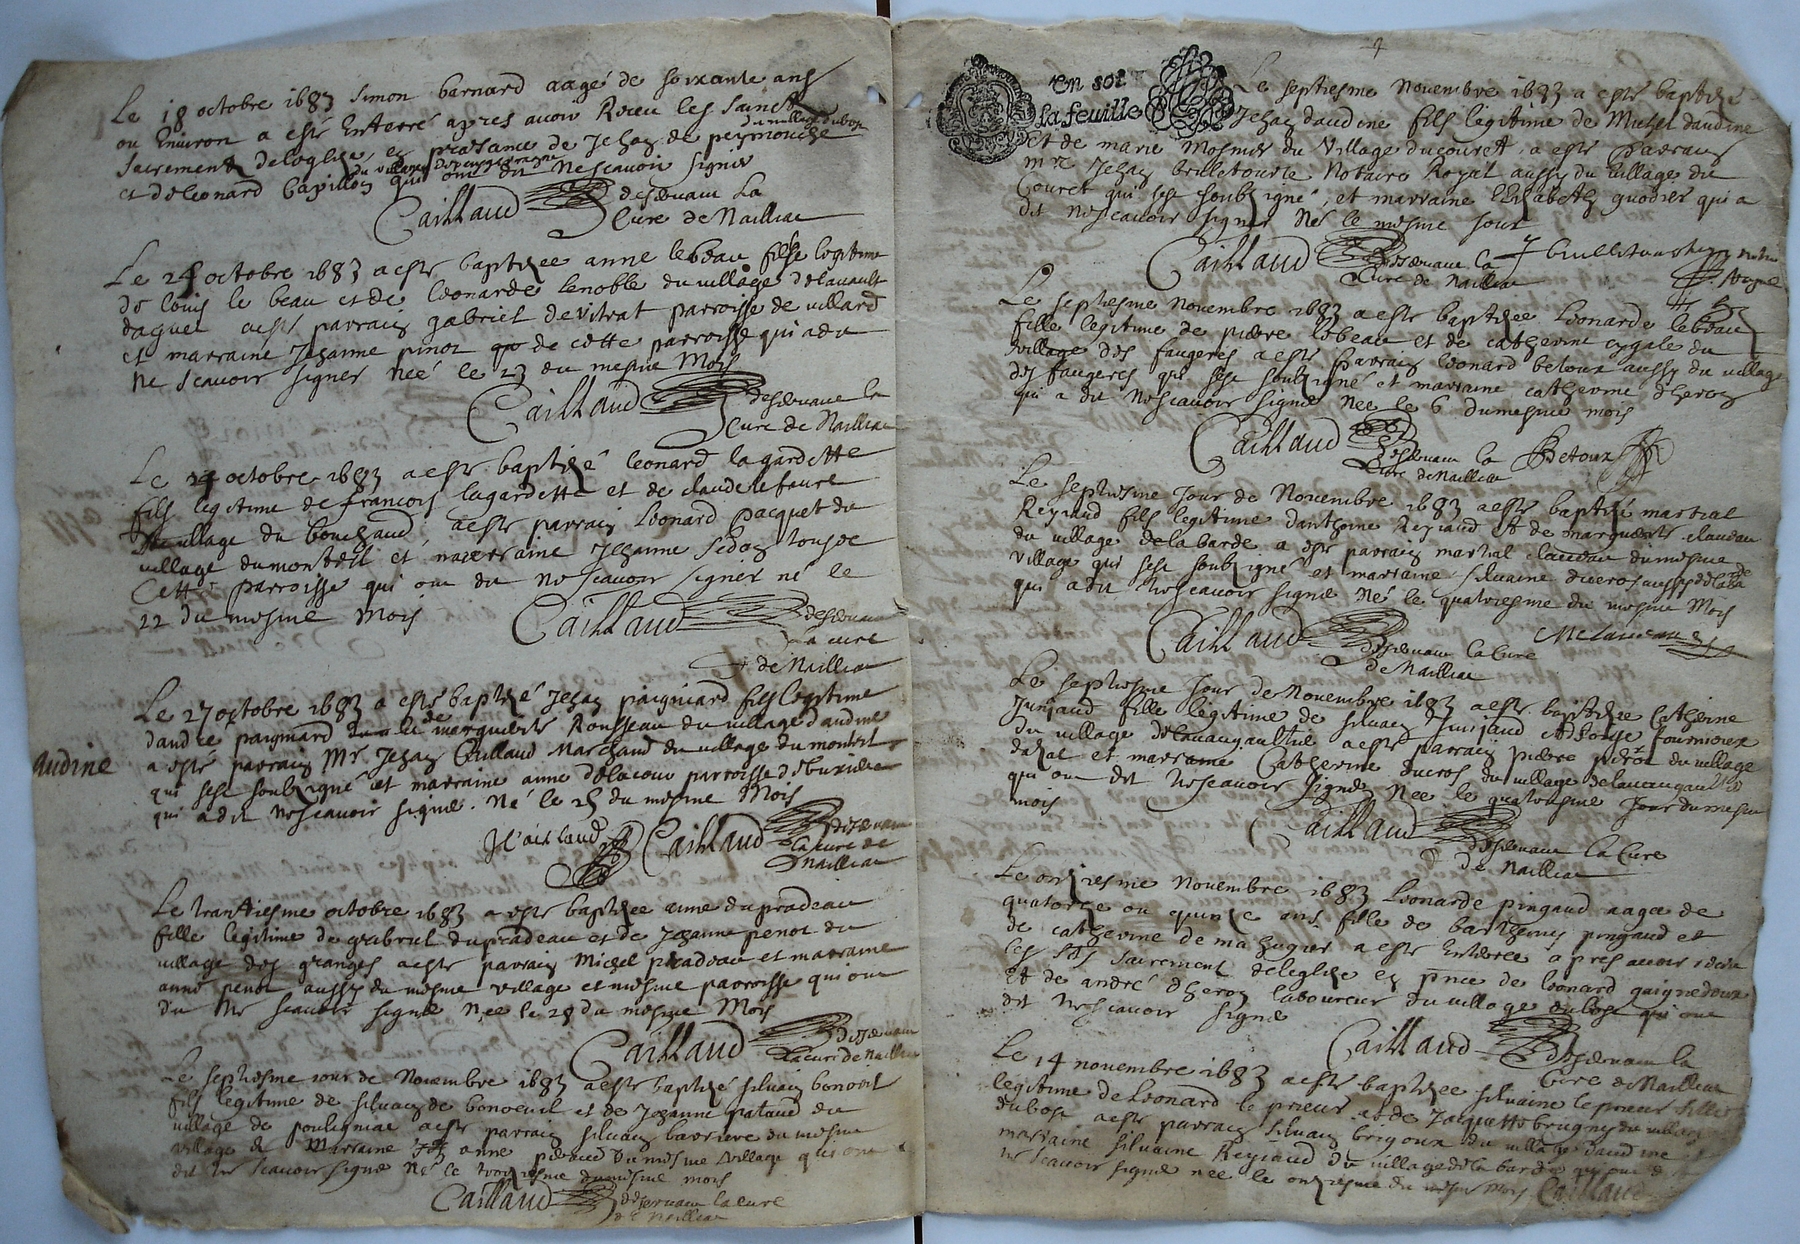 Le 18 octobre 1683 simon barnard aagé de soixante ans
ou Environ a esté Enterré apres avoir Receu les saincts
du village dubost
sacrements deleglize, en presance de Jehan de peymouche
et deleonard papillon qui ont dit ne scavoir signer
Caillaud deservant La
Cure de Naillac
Le 24 octobre 1683 a esté baptizee anne lebeau fille legitime
de louis le beau et de leonarde lenoble du village delavault
daguet a esté parrain gabriel devitrat parroisse de villard
et marraine Jehanne pinot de cette parroisse qui a dit
ne scavoir signer neé le 23 du mesme Mois
Caillaud deservant la
Cure de Naillac
Le 24 octobre 1683 a esté baptizé leonard lagardette
fils legitime de francois lagardette et de claude lefaure
du village du bouchaud, a esté parrain Leonard pacquet du
village dumonteil et marraine Jehanne sedon tous de
Cette parroisse qui ont dit ne scavoir signer né le
22 du mesme mois Caillaud deservant
La cure
de Naillac
Le 27 octobre 1683 a esté baptizé Jehan paigniard fils legitime
dandre paigniard de marguerite Rousseau du village daudine
audine
a esté parrain Mr. Jehan Caillaud Marchand du village du monteil
qui sest soubzigné et marraine anne delacour parroisse
qui a dit ne scavoir signer. Né le 25 du mesme Mois
J Caillaud Caillaud deservant
la cure de
Naillac
Le trantiesme octobre 1683 a esté baptizee anne dupradeau
fille legitime de gabriel dupradeau et de Jehanne penot du
village des granges a esté parrain Michel pradeau et marraine
anne penot aussy du mesme village et mesme parroisse qui ont
dit ne scavoir signer Nee le 28 du mesme Mois
Caillaud deservant
la cure de Naillac
Le septiesme jour de Novembre 1683 a esté baptizé silvain bonoeil
fils legitime de silvain de bonoeuil et de Jehanne pataud du
village de poulegniat a esté parrain silvain barriere du mesme
village & Marraine anne du mesme village qui ont
dit ne scavoir signer Né le troiziesme du mesme mois
Caillaud deservant la cure
de Naillac
un sol
la feuille
Le septiesme Novembre 1683 a esté baptizé
Jehan daudine fils legitime de Michel daudine
et de marie Mosnier du Village ducouret, a esté parrain
mre Jehan brilletourte Notaire Royal aussy du village du
Couret qui sest soubzigné, et marraine Elizabeth qui a
dit ne scavoir signer Né le mesme jour
Caillaud deservant la
Cure de Naillac
Le septiesme Novembre 1683 a esté baptizee Leonarde lebeau
fille legitime de pierre lebeau et de catherine cygale du
village des faugeres a esté parrain leonard betoux aussy du village
des faugeres qui sest soubzigné et marraine catherine dheron
qui a dit ne scavoir signer Nee le 6 dumesme mois
Caillaud deservant la Betoux
Cure de Naillac
Le septiesme jour de Novembre 1683 a esté baptizé martial
Reyraud fils legitime danthoine Reyraud et de marguerite claveau
du village delabarde a esté parrain martial claveau dumesme
village qui sest soubzigné et marraine silvaine ducros aussy dela barde
qui a dit ne scavoir signer Né le quatriesme du mesme Mois
Caillaud deservant la Cure M claveau
de Naillac
Le septiesme jour de Novembre 1683 a esté baptizee Catherine
Junjaud fille legitime de silvain Junjaud et de fournioux
du village a esté parrain pierre perot du village
dazat et marraine Catherine ducros du village
qui ont dit ne scavoir signer Nee le quatriesme jour du mesme
mois
Caillaud deservant la Cure
de Naillac
Le onziesme Novembre 1683 Leonarde pingaud aagee de
quatorze ou quinze ans fille de barthemy pingaud et
de catherine de mahugier a esté Enterree apres avoir receu
les sts sacrement deleglize en pnce de leonard gaignedoux
et de andré dheron laboureur du village dubost qui ont
dit ne scavoir signer
Caillaud deservant la
Cure de Naillac
Le 14 novembre 1683 a esté baptizee silvaine leprieur fille
legitime de Leonard le prieur et de Jacquette brugny du village
dubost a esté parrain silvain brigoux du village daudine
marraine silvaine Reyraud du village dela barde qui ont dit
ne scavoir signer nee le onziesme du mesme mois Caillaud